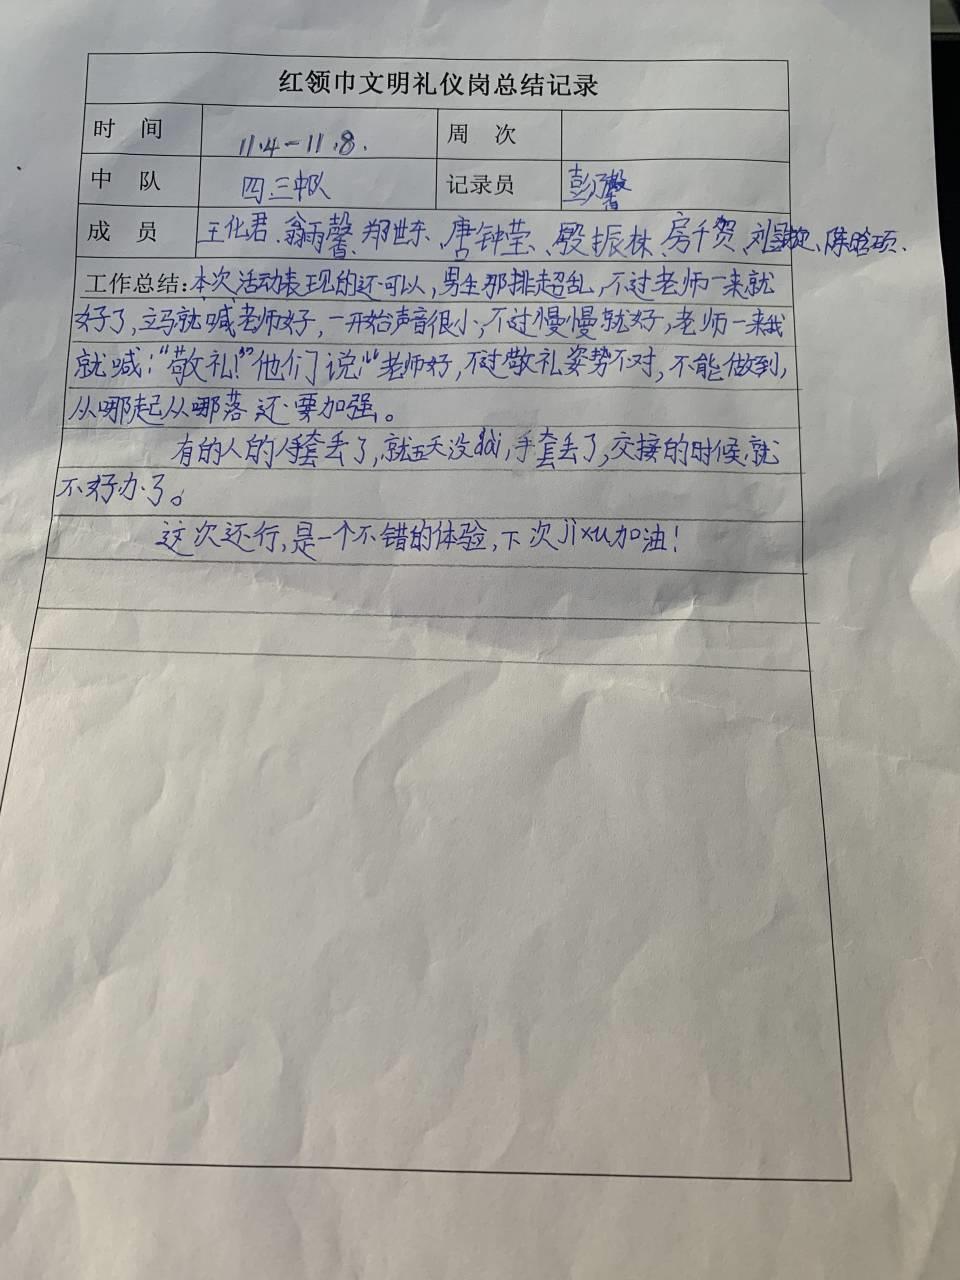 红领巾文明礼仪岗总结记录
时 间 11.4-11.8. 周 次
中 队 四.三中队 记录员 彭乃馨
成 员 王化君、翁雨馨、郑世东、唐钟莹、殷振林、房千贺、刘、陈晗硕、
工作总结:本次活动表现的还可以,男生那排超乱,不过老师一来就
好了,立马就喊老师好,一开始声音很小,不过慢慢就好,老师一来我
就喊:“敬礼!”他们说:“老师好,不过敬礼姿势不对,不能做到,
从哪起从哪落还要加强。
有的人的手套丢了,就五天没dài,手套丢了,交接的时候,就
不好办了。
这次还行,是一个不错的体验,下次jì xu加油!